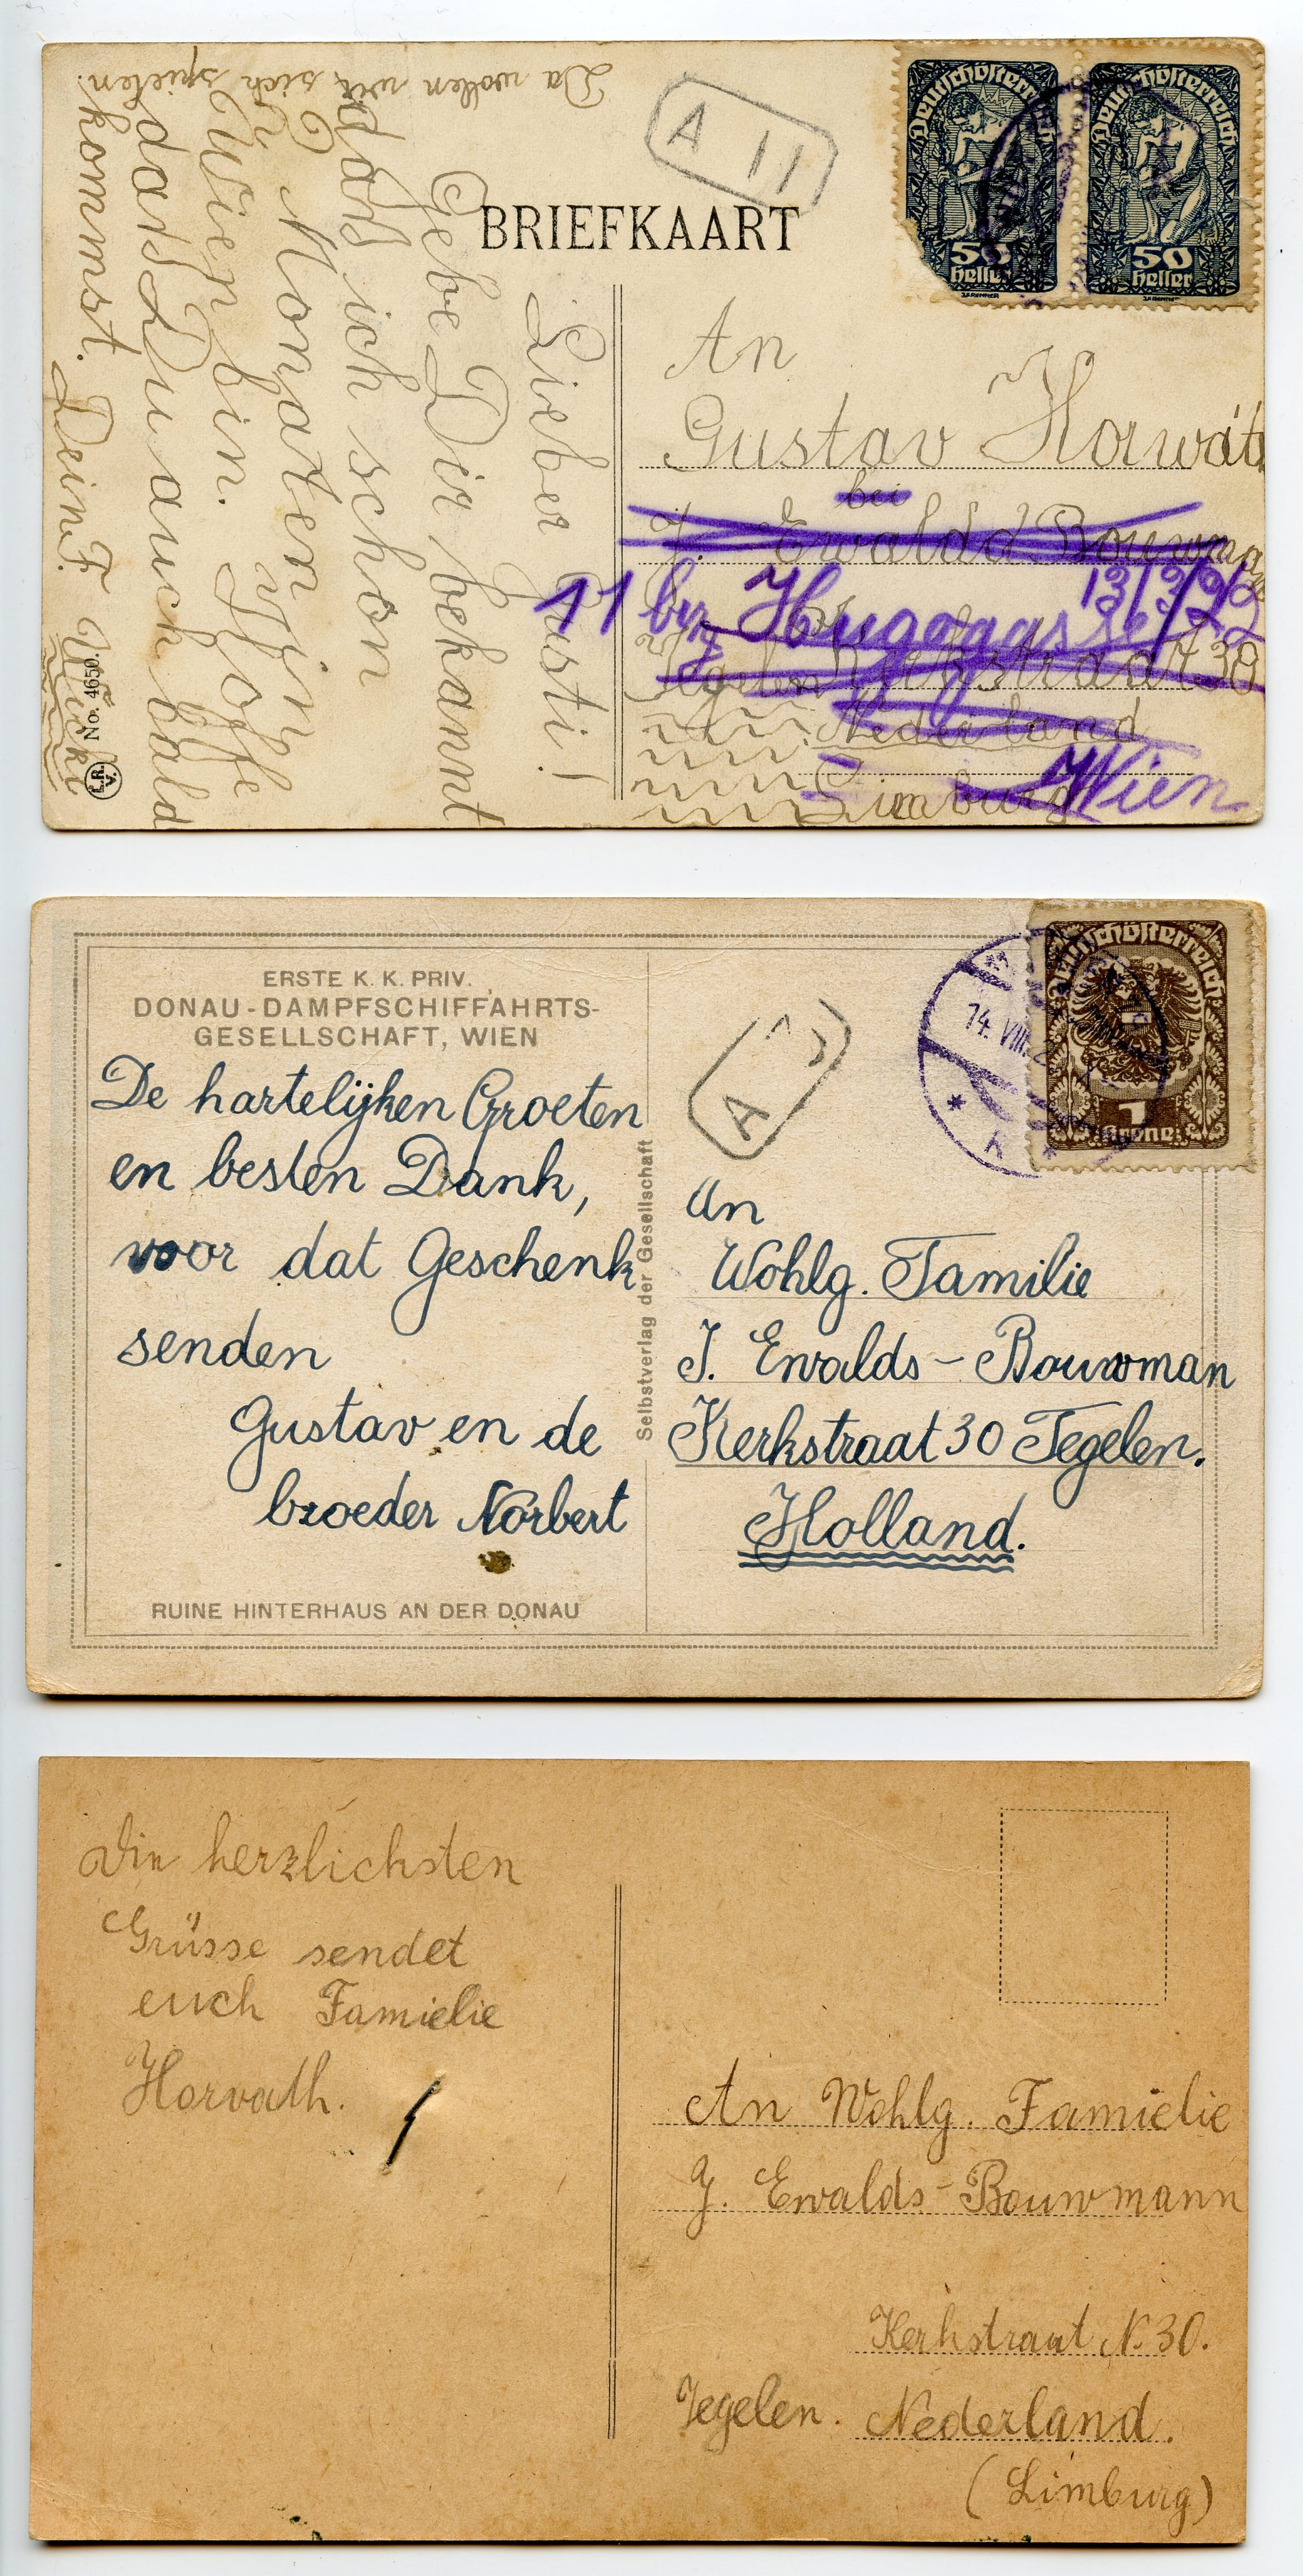 BRIEFKAART
A II
Deutschösterreich
50
Heller
Deutschösterreich
50
Heller
Lieber Gusti!
Gebe Dir bekannt
daß ich schon
Monaten in
Wien bin. Hoffe
daß Du auch bald
kommst. Deine F.
Da wollen wir sich spielen.
No. 4650.
An
Gustav Horwáth
bei
J. Ewald Bouwman
11 Hugogasse
Tegelen Kerkstraat 30
Nederland
Limburg
Wien
ERSTE K. K. PRIV.
DONAU-DAMPFSCHIFFAHRTS-
GESELLSCHAFT, WIEN
De hartelijken Groeten
en besten Dank,
voor dat Geschenk
senden
Gustav en de
broeder Norbert
RUINE HINTERHAUS AN DER DONAU
Selbstverlag der Gesellschaft
A
14. VIII.
Deutschösterreich
1
Krone
An
Wohlg. Familie
J. Ewalds - Bouwman
Kerkstraat 30 Tegelen.
Holland.
Die herzlichsten
Grüsse sendet
euch Famielie
Horvath.
An Wohlg. Famielie
J. Ewalds-Bouwmann
Kerkstraat N. 30.
Tegelen. Nederland.
(Limburg)